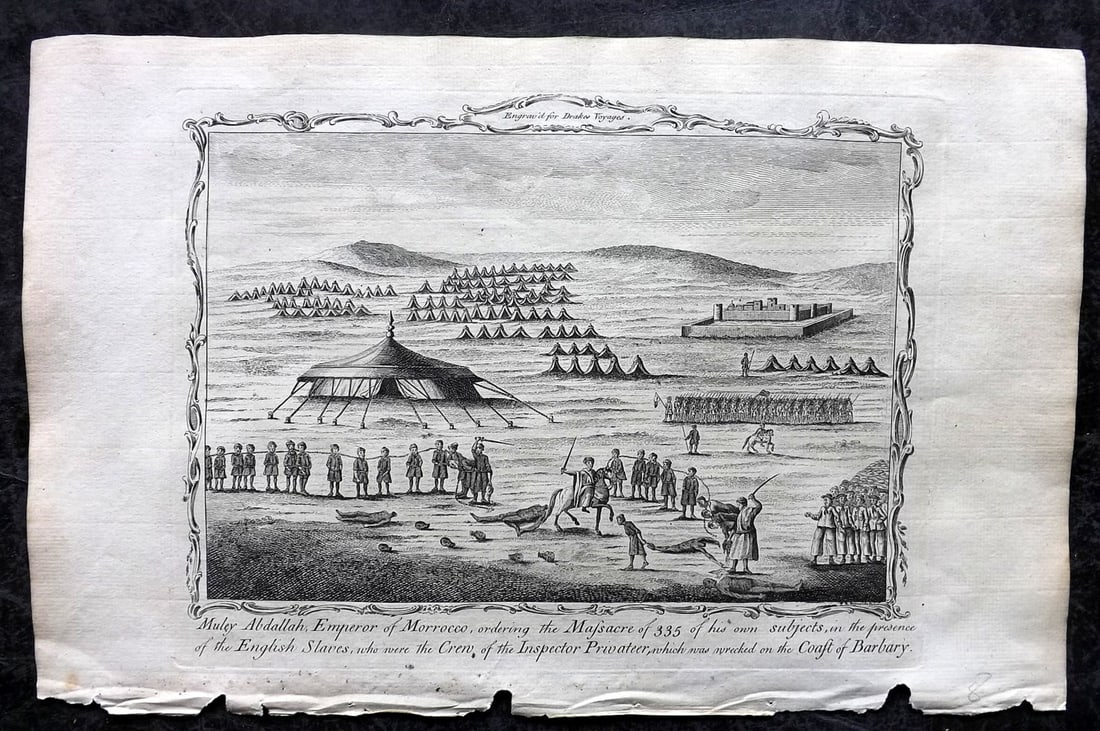 Engrav'd for Drakes Voyages.
Muley Abdallah, Emperor of Morrocco, ordering the Maſsacre of 335 of his own subjects, in the presence
of the English Slaves, who were the Crew, of the Inspector Privateer, which was wrecked on the Coaſt of Barbary.
8